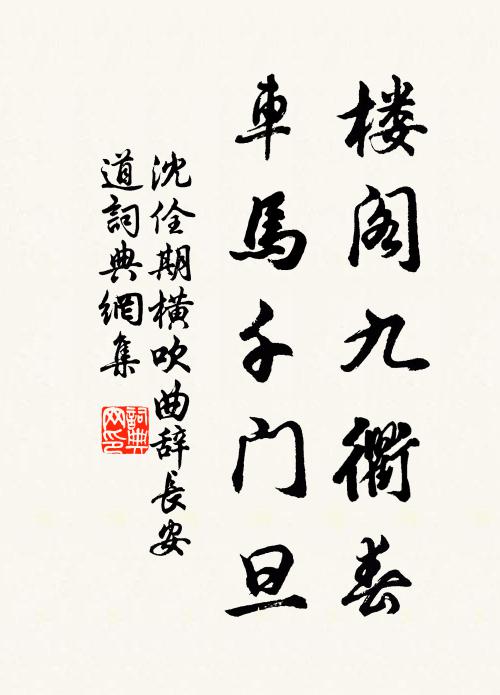 楼阁九衢春
車馬千门旦
沈佺期横吹曲辞長安
道詞典網集
詞典
网印